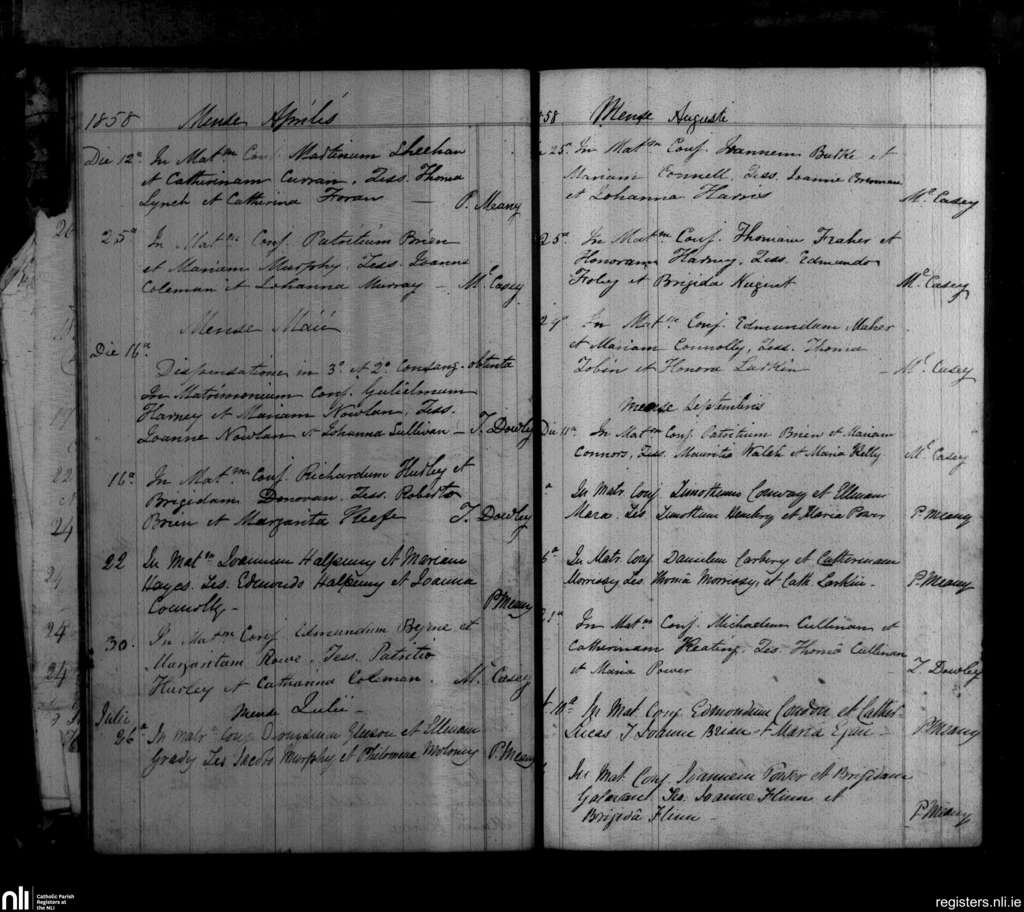 1858 Mense Aprilis
Die 12ª In Matm Conj. Martinum Sheehan
et Catherinam Curran, Tess. Thoma
Lynch et Catherina Foran — P. Meany
25ª In Matm Conj. Patritium Brien
et Mariam Murphy, Tess. Joanne
Coleman et Johanna Murray — Mc. Casey
Mense Maii
Die 16ª
Dispensatione in 3º et 2º Consang. obtenta
In Matrimonium Conj. Gulielmum
Harney et Mariam Nowlan, Tess.
Joanne Nowlan & Johanna Sullivan — T. Dowley
16ª In Matm Conj. Richardum Hurley et
Brigidam Donovan. Tess. Roberto
Brien et Margarita Keefe T. Dowley
22 In Matm Joannem Halfpenny et Mariam
Hayes. Tes. Edmundo Halfpenny et Joanna
Connolly — P Meany
30. In Matm Conj. Edmundum Byrne et
Margaritam Rowe, Tess. Patritio
Hurley et Catharina Coleman. Mc. Casey
Mense Julii —
Julii
26ª In matr Conj Dionysium Gleeson et Ellenam
Grady Tes Jacobo Murphy et Philomena Moloney P Meany
58 Mense Augusti
25. In Matm Conj. Joannem Burke et
Mariam Connell, Tess. Joanne Brennan
et Johanna Harris Mc. Casey
25ª. In Matm Conj. Thomam Fraher et
Honoram Harney, Tess. Edmundo
Foley et Brigida Nugent Mc. Casey
29 In Matm Conj. Edmundum Maher
et Mariam Connolly, Tess. Thoma
Tobin et Honora Larkin — Mc. Casey
Mense Septembris
Die 11ª In Matm Conj Patritium Brien et Mariam
Connors, Tess. Mauritio Walsh et Maria Kelly Mc Casey
In Matr. Conj Timotheum Conway et Ellenam
Mara. Tes Timotheum et Maria Power P Meany
5ª In Matr. Conj Danielem Carbery et Catherinam
Morrissy Tes Thoma Morrissy, et Cath Larkin — P. Meany
21ª In Matm Conj. Michaelem Cullinan et
Catherinam Keating, Tes. Thoma Cullinan
et Maria Power — T. Dowley
10ª In Mat. Conj Edmondum Condon et Cather.
Lucas T Joanne Brien et Maria Egan — P Meany
In Mat. Conj. Joannem Power et Brigidam
Galavan Tes. Joanne Flinn et
Brigida Flinn — P Meany
26
22
24
24
24
24
nli
Catholic Parish
Registers at
the NLI
registers.nli.ie